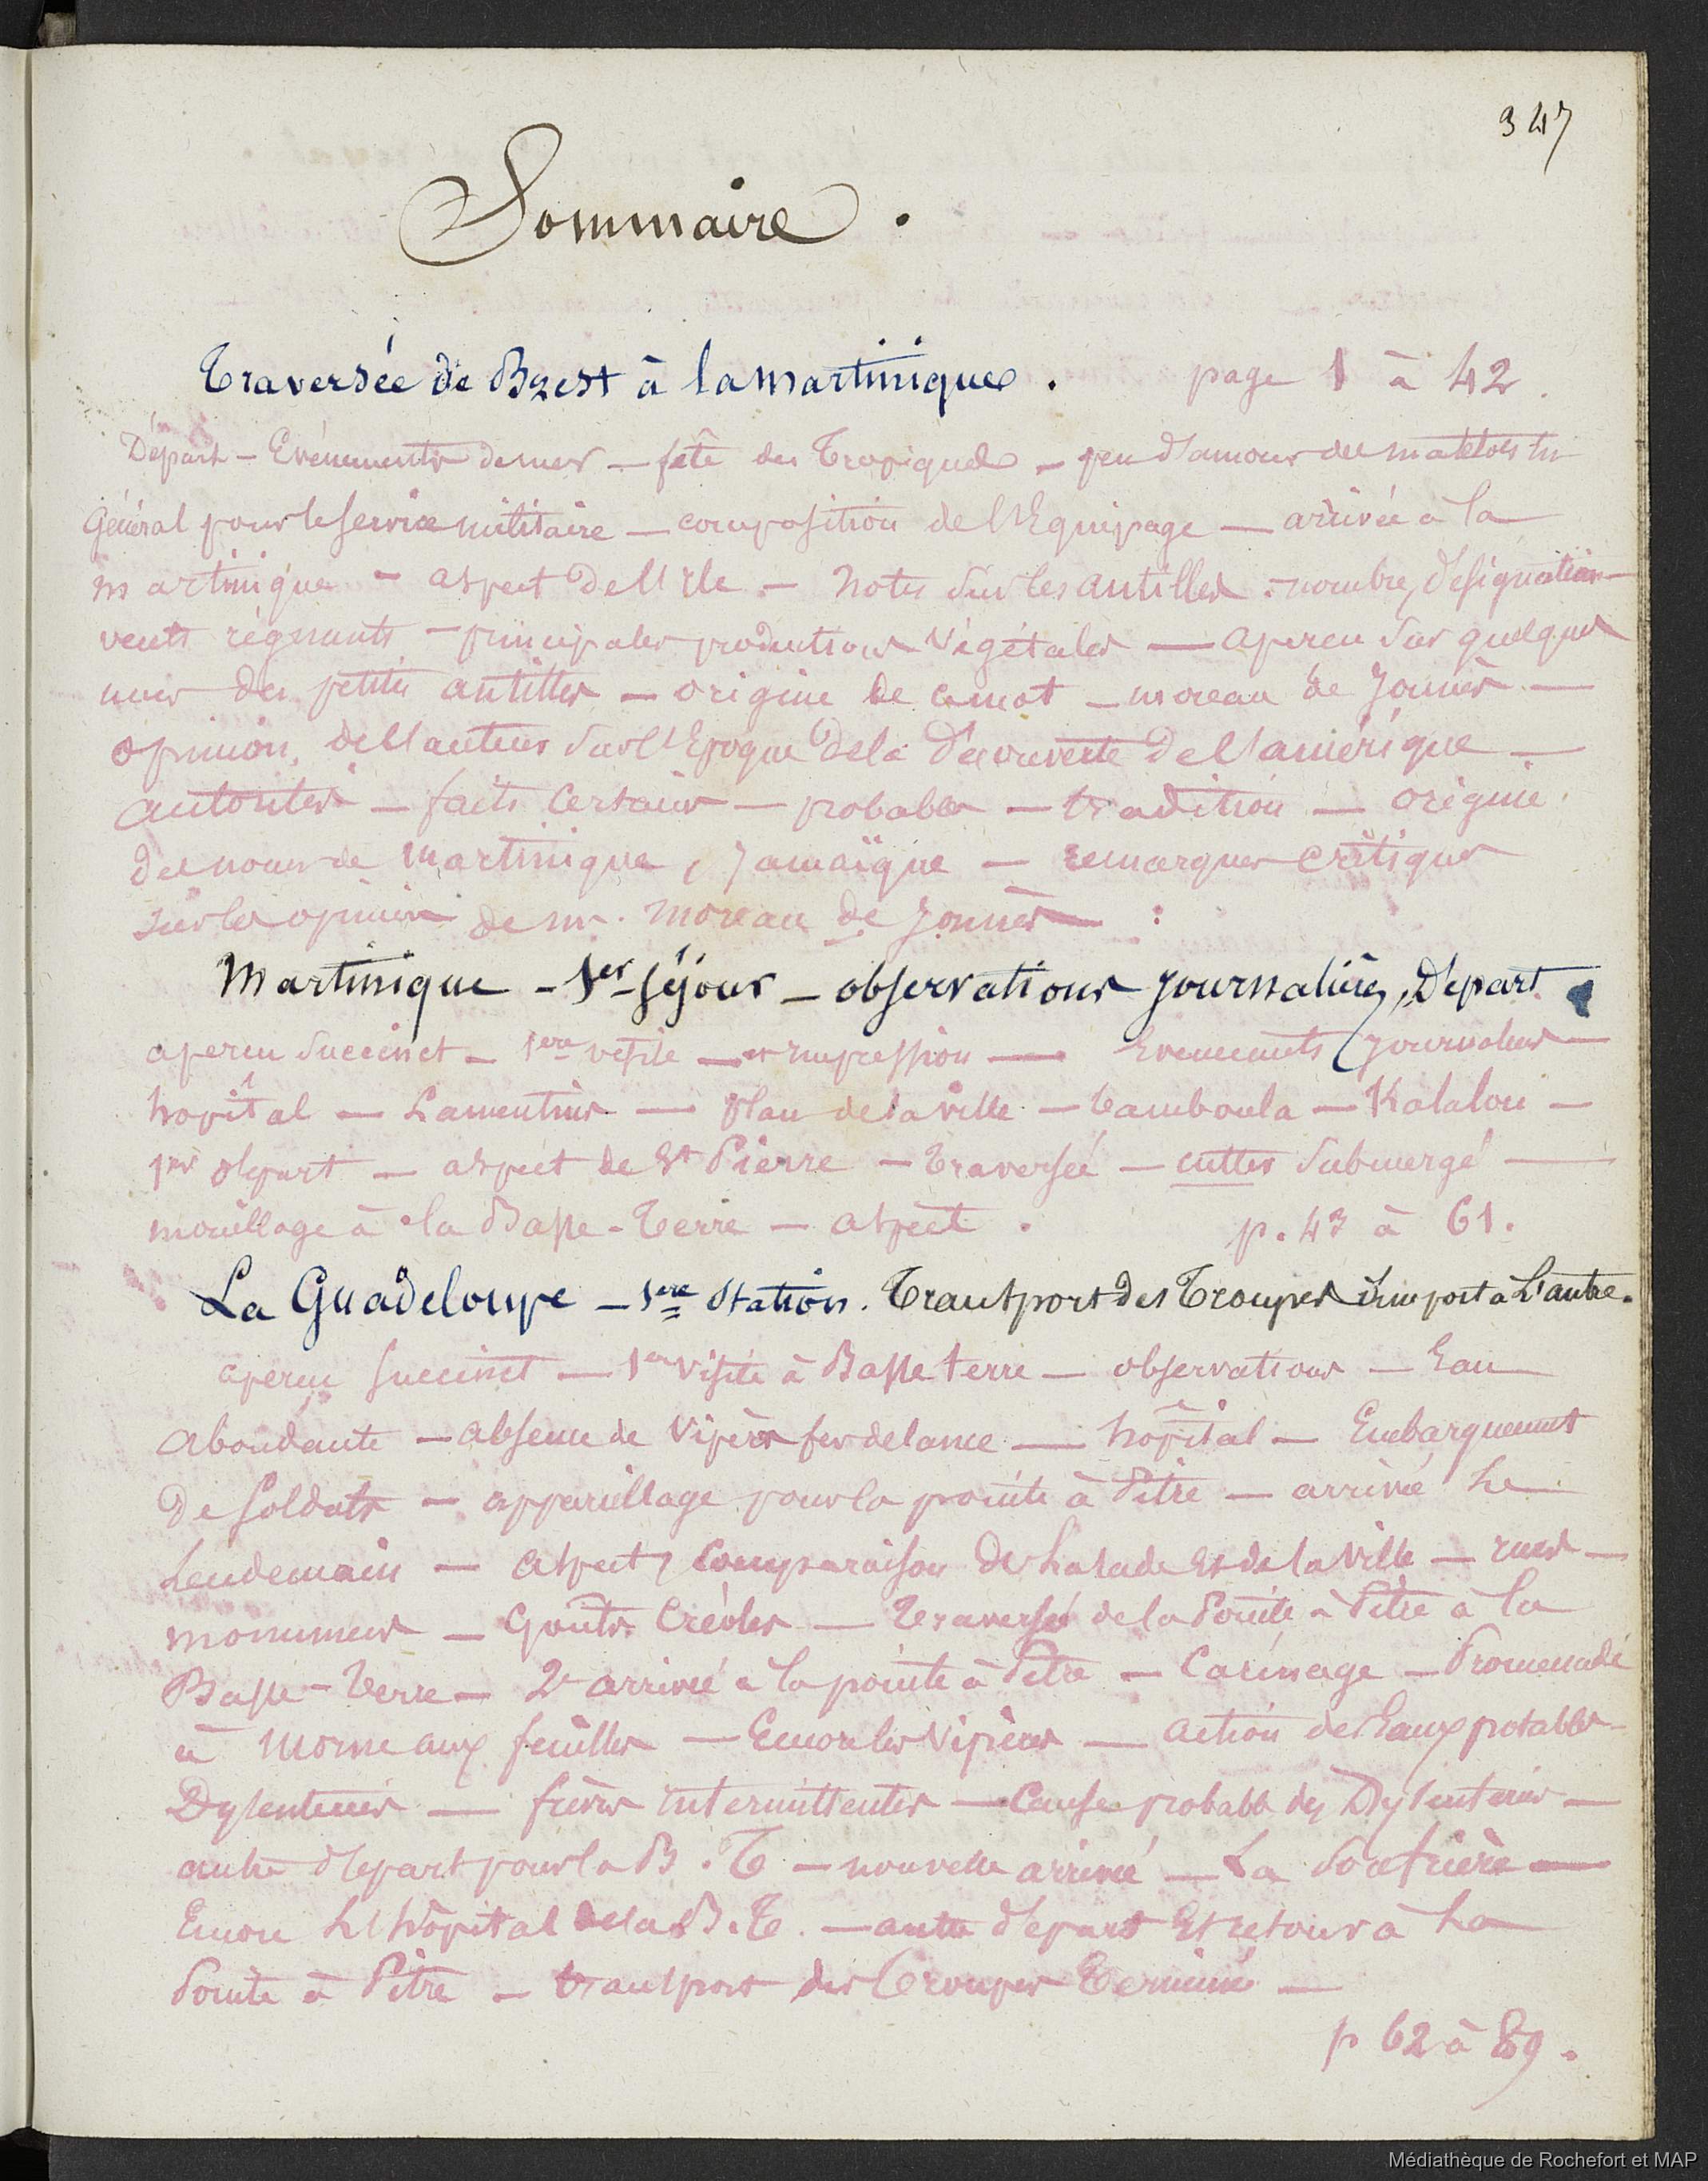 347
Sommaire .
Traversée de Brest à la martinique . page 1 à 42.
Départ – Evénements de mer – fête des Tropiques – peu d'amour des matelots en
Général pour le service militaire – composition de l'Equipage – arrivée à la
martinique – aspect de l'Ile – Notes sur les antilles : nombre, désignation –
vents régnants – principales productions végétales – apercu sur quelques
unes des petites antilles – origine de ce mot – moreau de Jonnès –
opinion, de l'auteur sur l'Epoque de la découverte de l'amérique –
autorités – faits certains – probables – tradition – origine
des noms de martinique, Jamaïque – remarques critiques
sur les opinions de mr. moreau de Jonnès :
Martinique – 1er séjour – observations journalières, Départ
apercu succinct – 1ere visite – impression – Evenements journaliers –
hopital – Lamentin – plan de la ville – bamboula – Kalalou –
1er départ – aspect de St Pierre – Traversée – cutter submergé –
mouillage à la Basse-Terre – aspect . p. 43 à 61.
La Guadeloupe – 1ere Station. Transport des Troupes d'un port à L'autre.
apercu succinct – 1ere visite à Basse terre – observations – Eau
abondante – absence de vipères fer de lance – hopital – Embarquement
de soldats – appareillage pour la pointe à Pitre – arrivée Le
Lendemain – aspect, comparaison de La rade et de la ville – rues –
monumens – Goûts Créoles – Traversée de la Pointe à Pitre à la
Basse-Terre – 2e arrivée à la pointe à Pitre – Carénage – Promenade
à morne aux feuilles – Encore les vipères – action des Eaux potables –
Dysenteries – fièvres intermittentes – Cause probable des Dysenteries –
autre départ pour la B. T – nouvelle arrivée – La soufrière –
Encore L'hôpital de la B. T. – autre départ et retour à La
Pointe à Pitre – transport des Troupes Terminé –
p 62 à 89.
Médiathèque de Rochefort et MAP